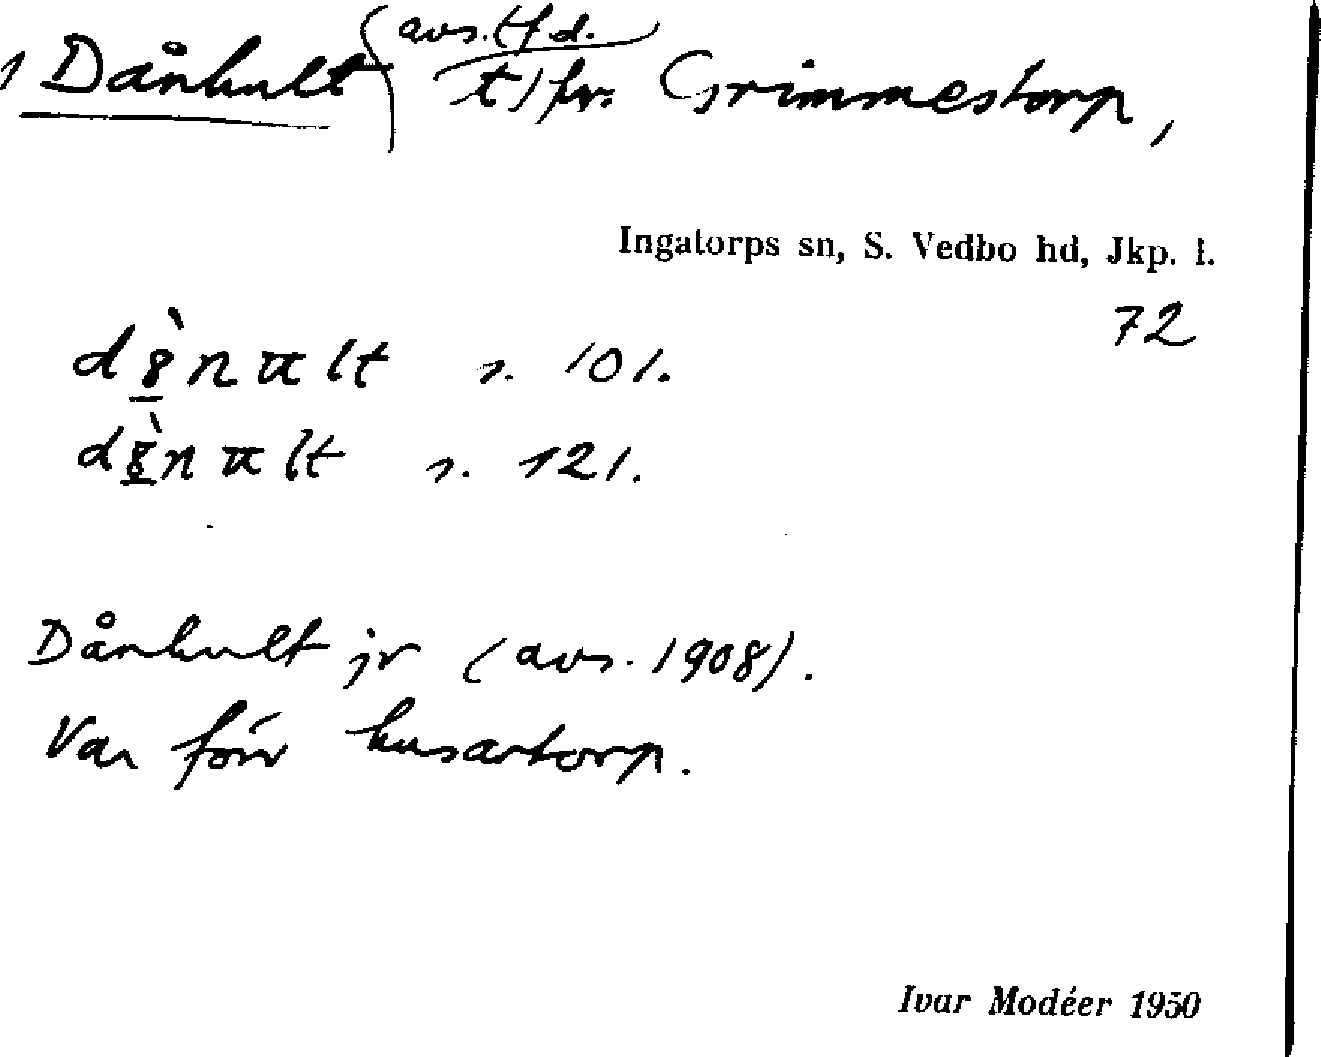 1 Dånhult (avs. (f d. t) fr. Grimmestorp,
Ingatorps sn, S. Vedbo hd, Jkp. l.
72
s. 101.
s. 121.
Dånhult jr (avs. 1908).
Var förr husartorp.
Ivar Modéer 1950